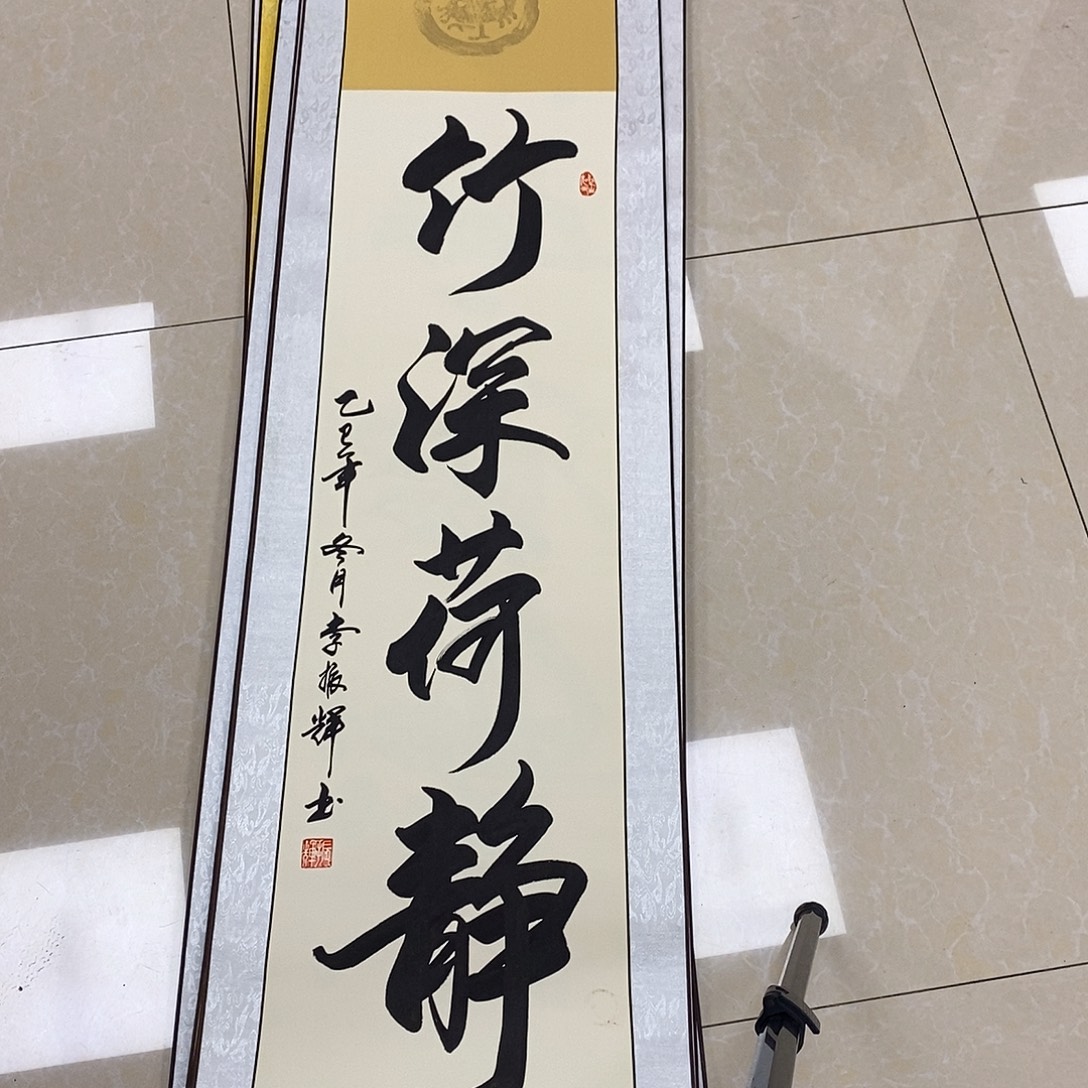 竹深荷静
乙巳年冬月李振辉书